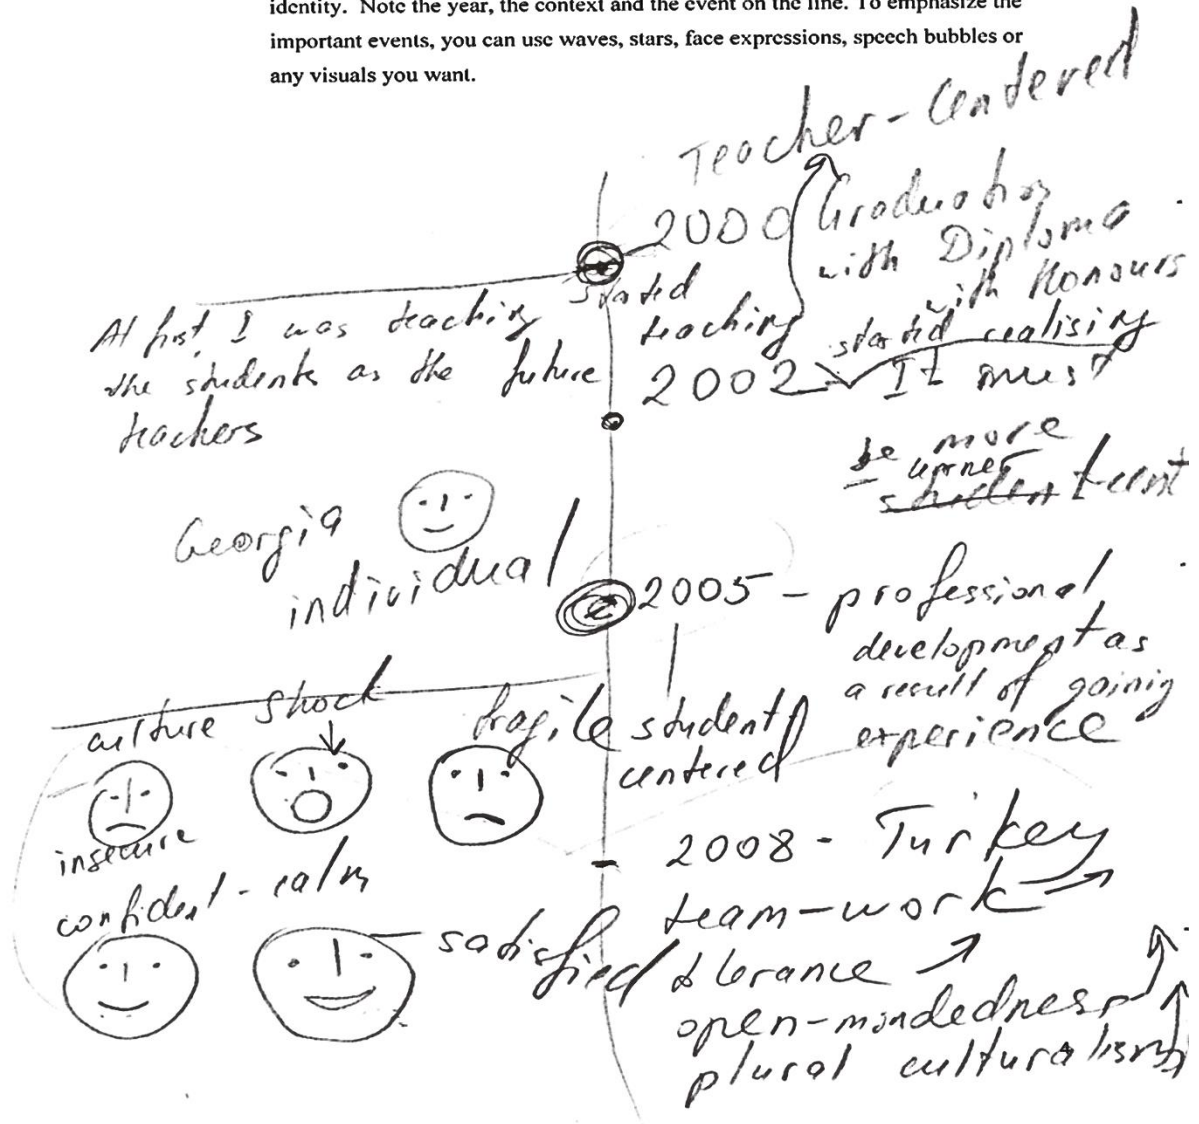 identity. Note the year, the context and the event on the line. To emphasize the
important events, you can use waves, stars, face expressions, speech bubbles or
any visuals you want.
Teacher-Centered
2000 Graduation
with Diploma
with Honours
stated
teaching
At first, I was teaching
the students as the future
teachers
2002 started realising
It must
be more
lerner
student-cent
Georgia
individual
2005 - professional
development as
a result of gainig
experience
student
centered
culture shock
fragile
insecure
confident-calm
satisfied
2008 - Turkey
team-work
tolerance
open-mondedness
plural culturalism